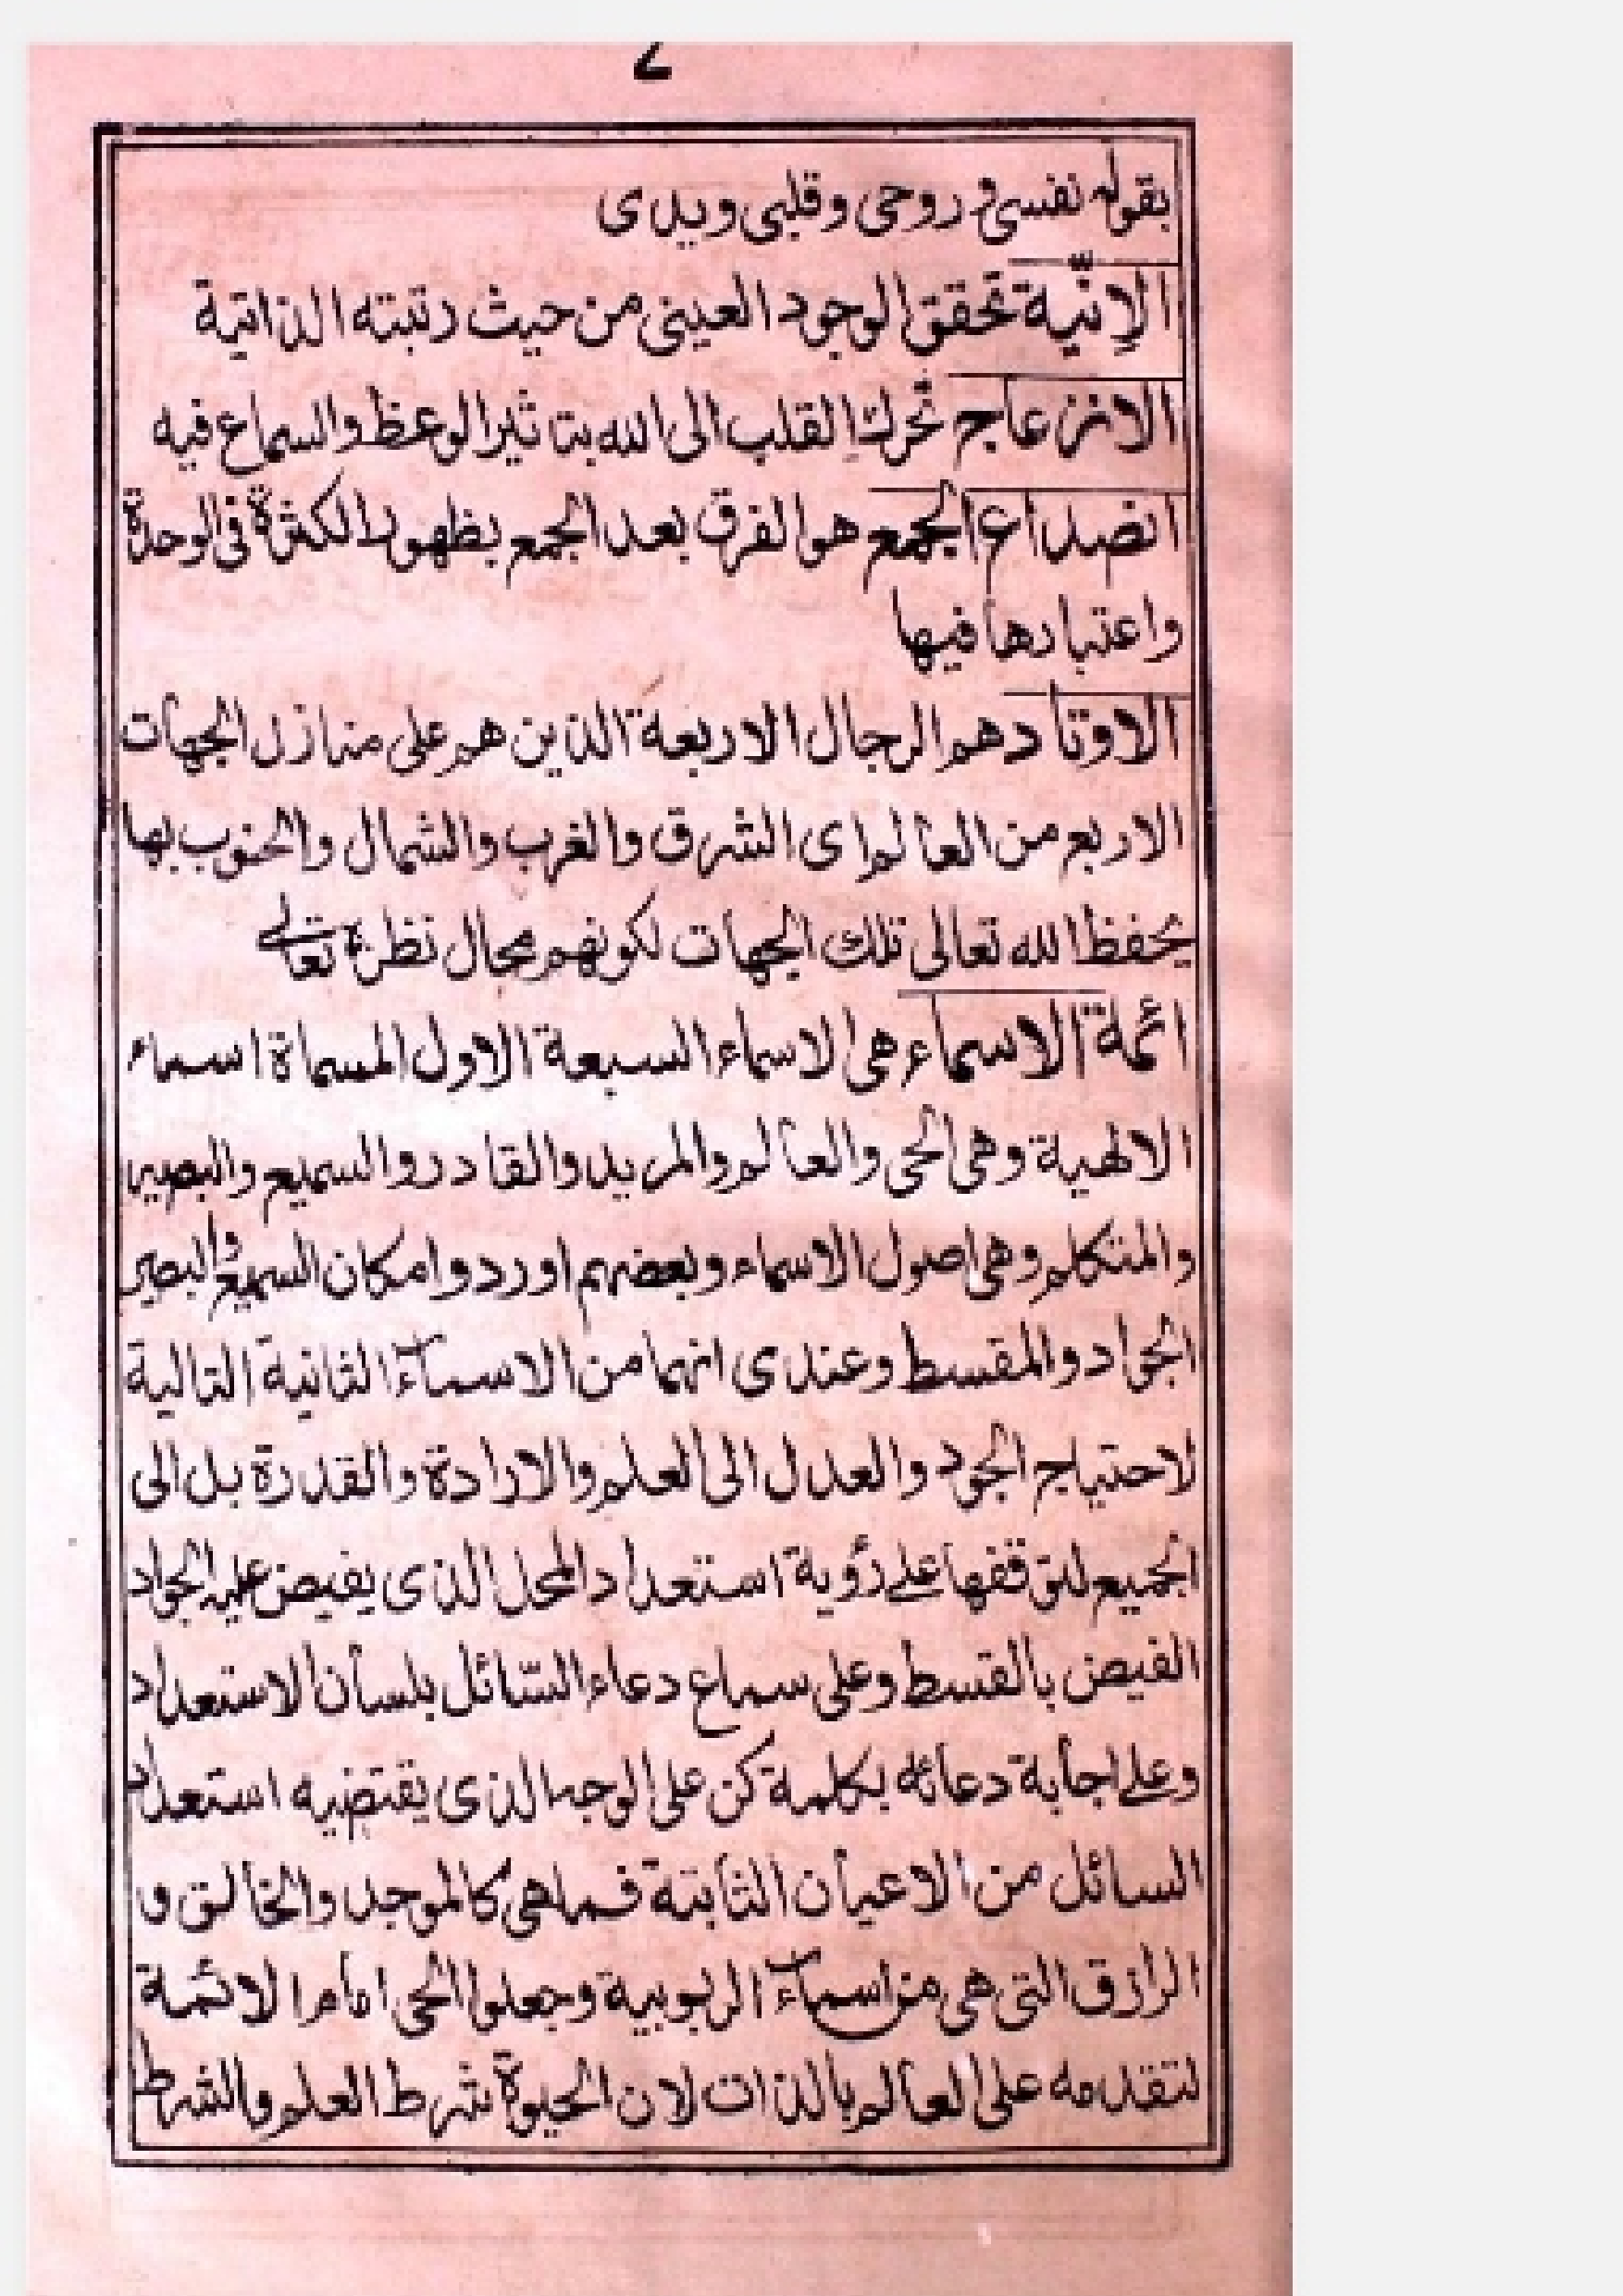 بقوله نفسى و روحى وقلبى ويدى
الاِنِّية تحقق الوجود العينى من حيث رتبته الذاتية
الانزعاج تحرك القلب الى الله بتاثير الوعظ والسماع فيه
انصداع الجمع هو الفرق بعد الجمع بظهور الكثرة فى الوحدة
واعتبارها فيها
الاوتاد هم الرجال الاربعة الذين هم على منازل الجهات
الاربع من العالم اى الشرق والغرب والشمال والجنوب بها
يحفظ الله تعالى تلك الجهات لكونهم محال نظرة تعالى
ائمة الاسماء هى الاسماء السبعة الاول المسماة اسماء
الالهية وهى الحى والعالم والمريد والقادر والسميع والبصير
والمتكلم وهى اصول الاسماء وبعضهم اوردوا مكان السميع والبصير
الجواد والمقسط وعندى انهما من الاسمآء الثانية التالية
لاحتياج الجود والعدل الى العلم والارادة والقدرة بل الى
الجميع لتوقفها على رؤية استعداد المحل الذى يفيض عليه الجواد
الفيض بالقسط وعلى سماع دعاء السائل بلسان الاستعداد
وعلى اجابة دعائه بكلمة كن على الوجه الذى يقتضيه استعداد
السائل من الاعيان الثابتة فما هى كالموجد والخالق و
الرازق التى هى من اسمآء الربوبية وجعلوا الحى امام الائمة
لتقدمه على العالم بالذات لان الحيوة شرط العلم والشرط